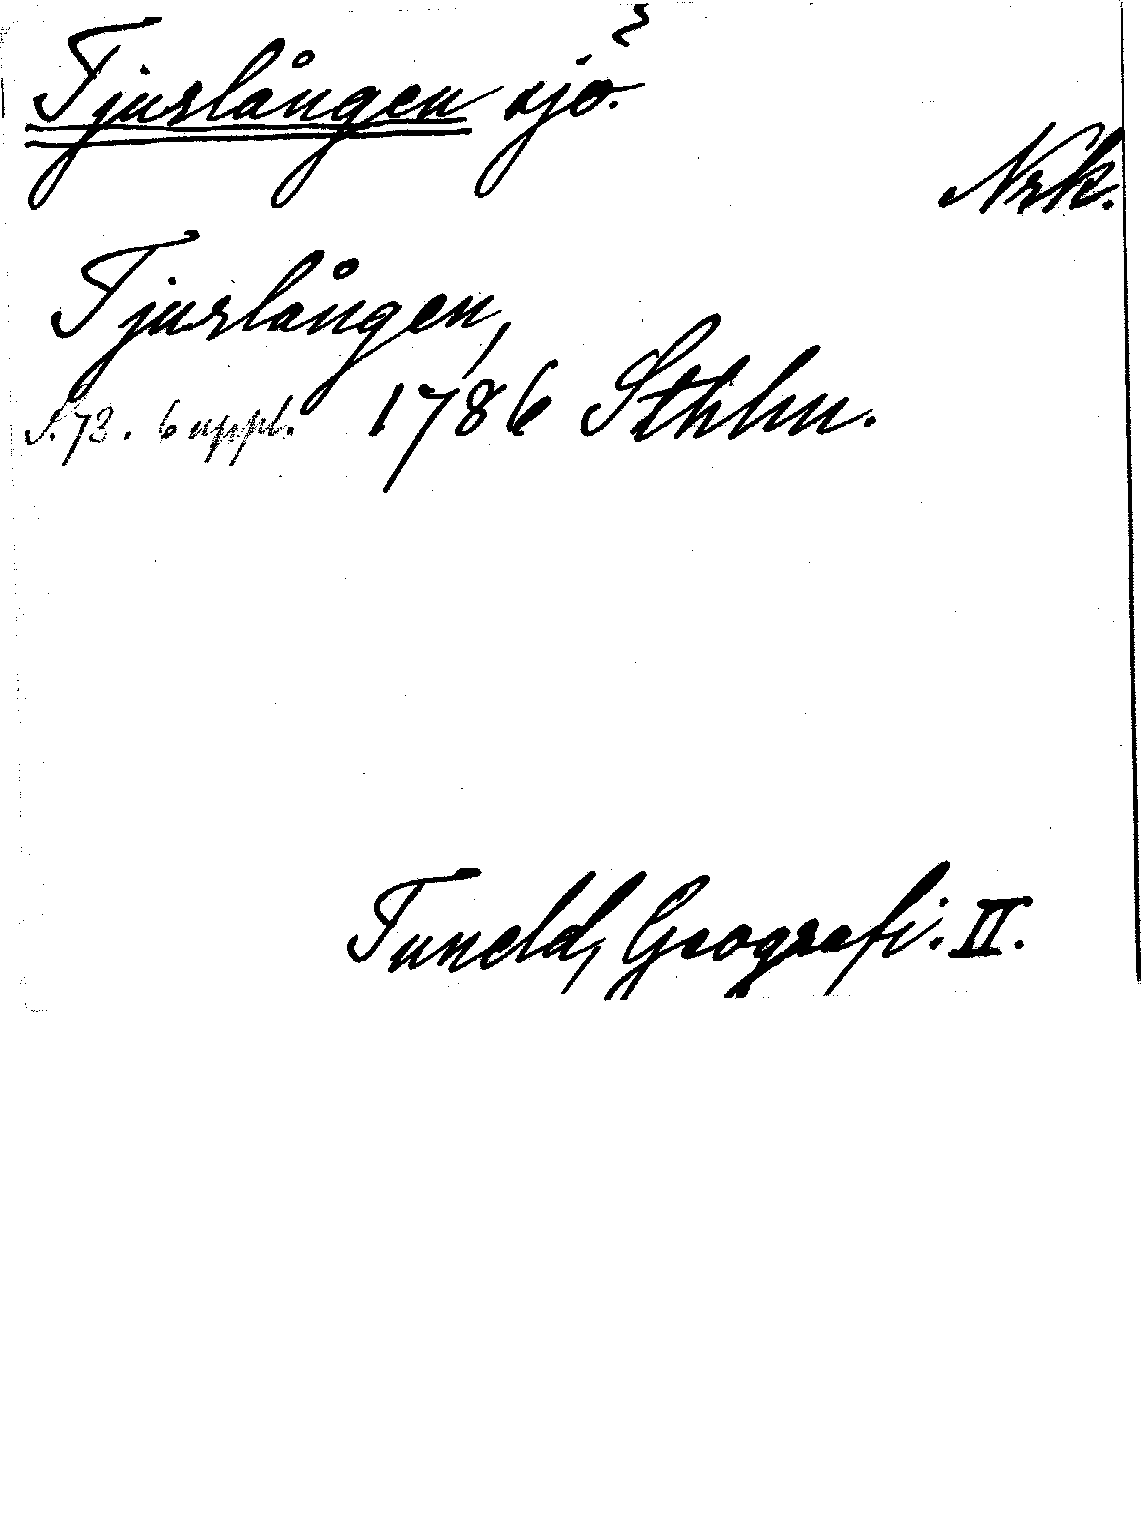 Tjurlången sjö.
Nrk.
Tjurlången,
S. 73. 6 uppl. 1786 Sthlm.
Tuneld, Geografi. II.